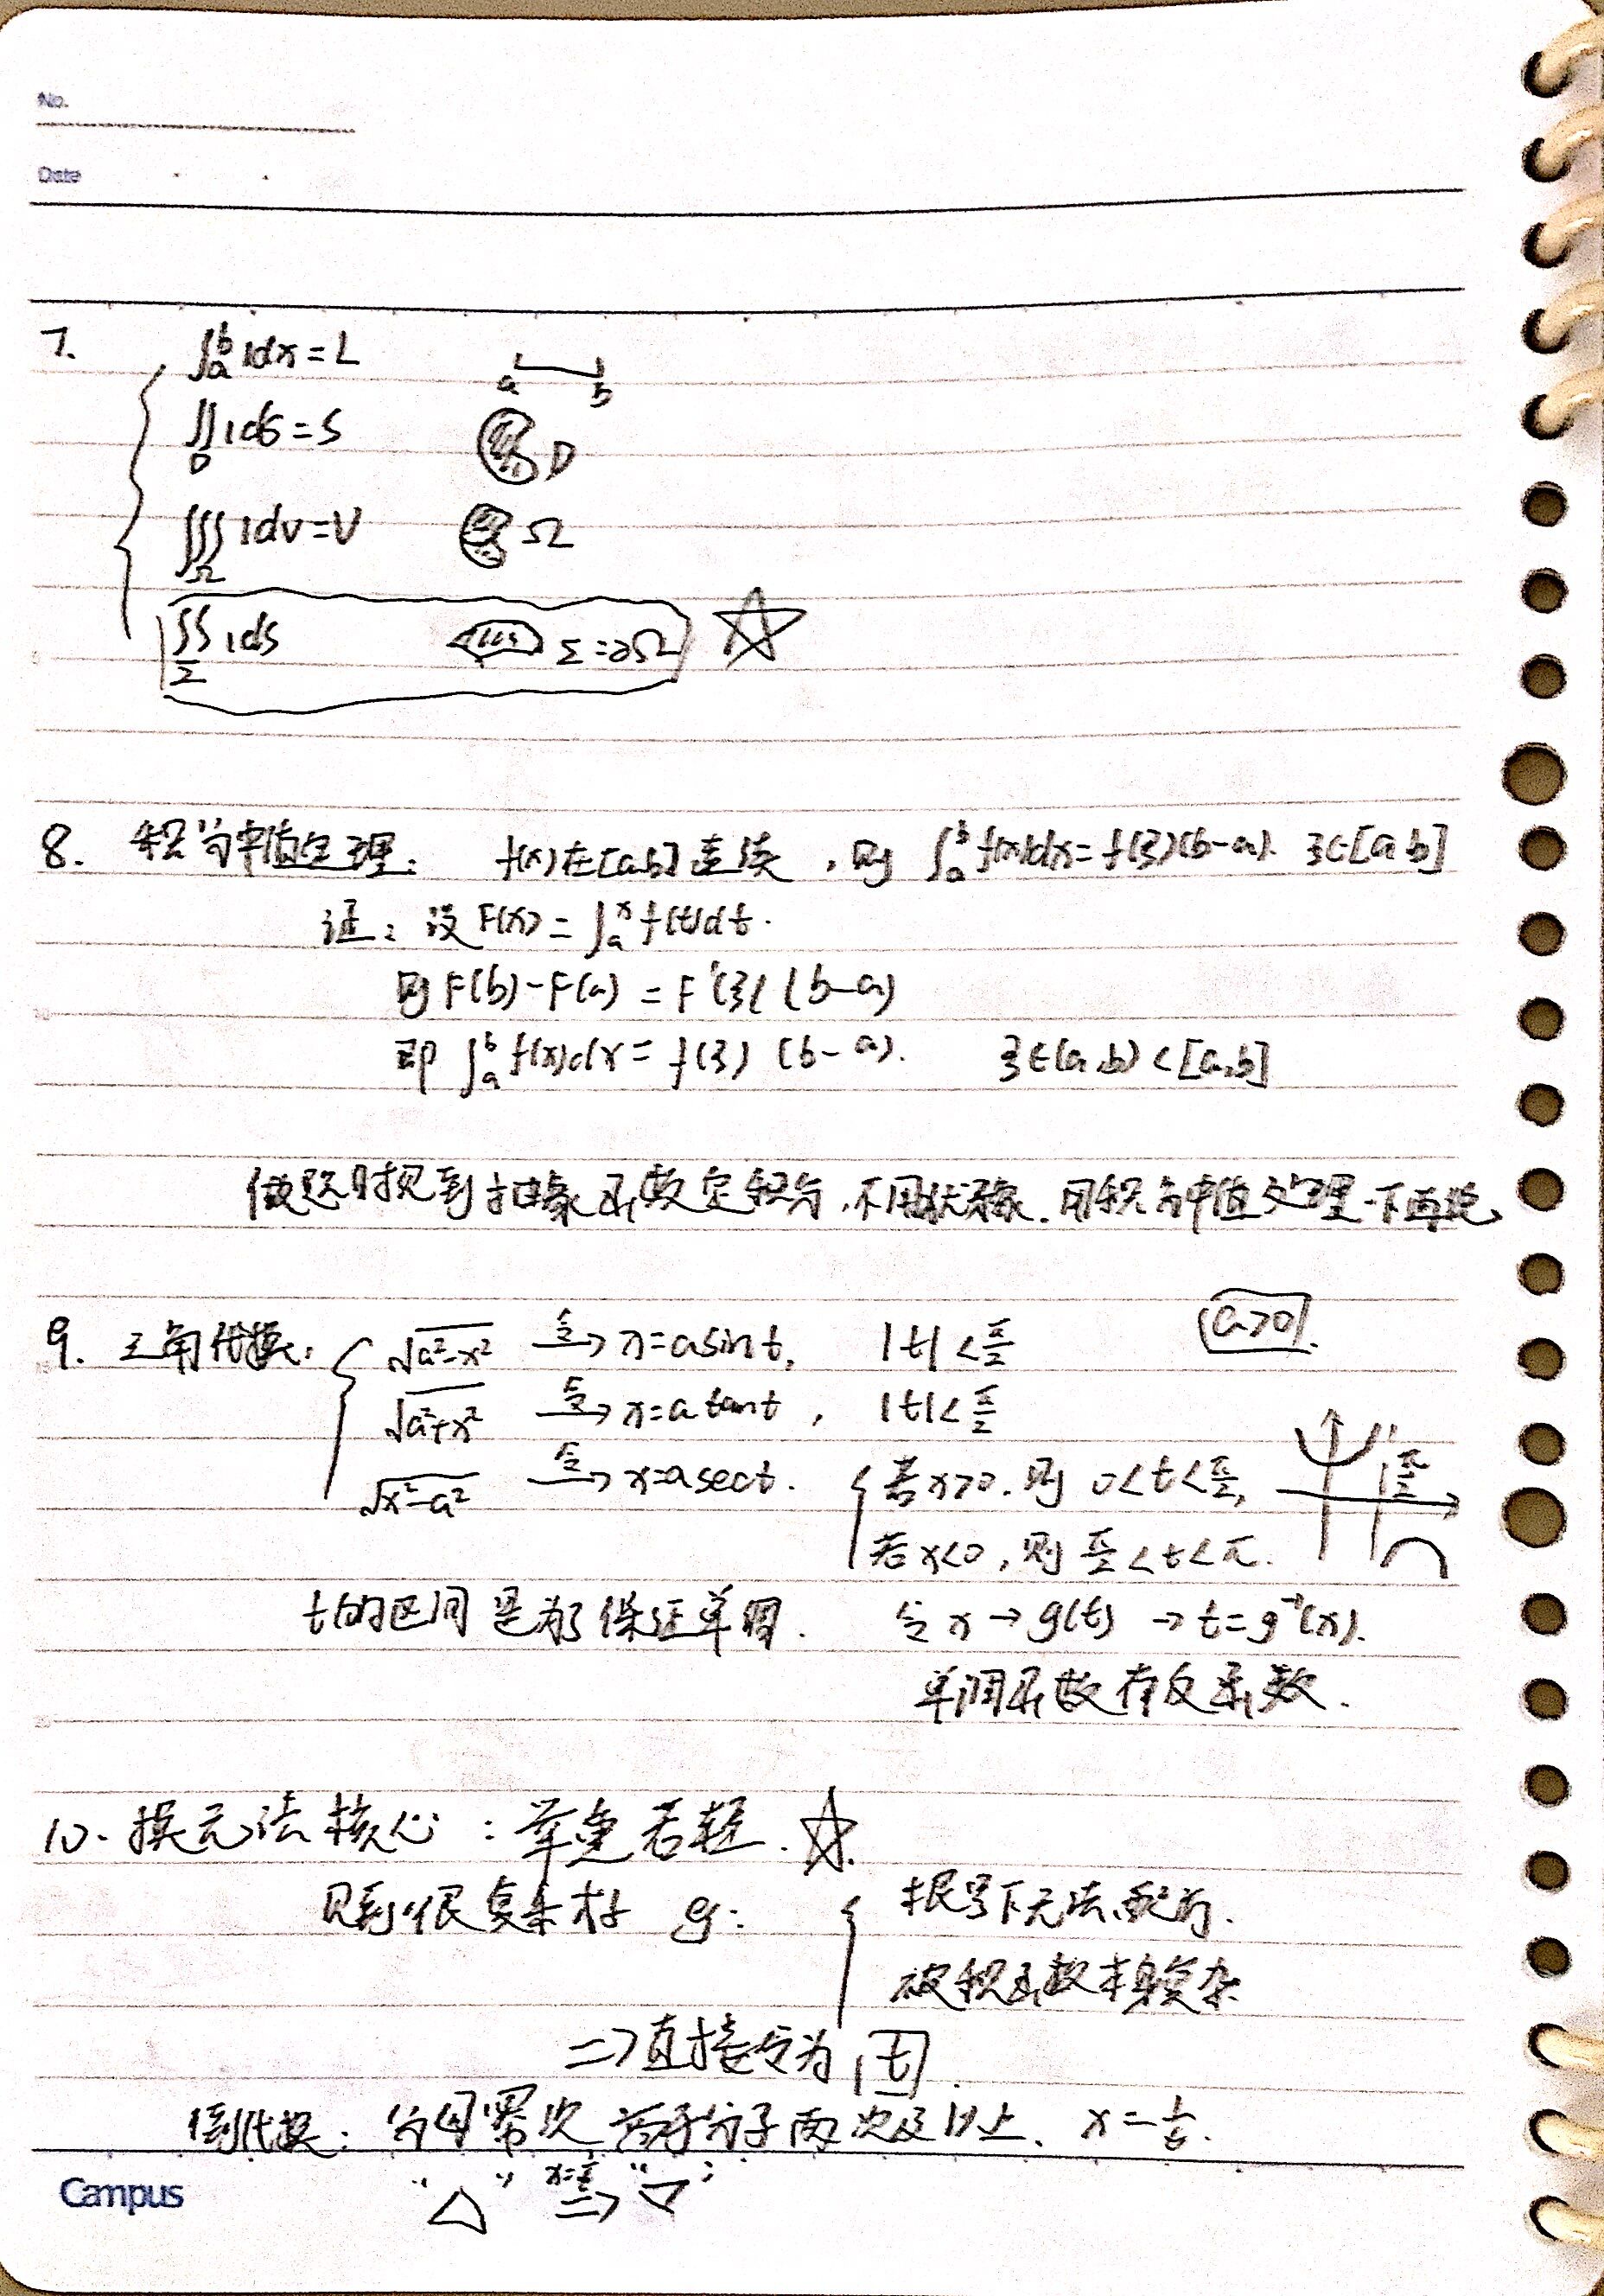 No.
Date
7. ∫_a^b 1dx = L a b
∬_D 1dσ = S D
∭_Ω 1dv = V Ω
∬_Σ 1dS Σ = ∂Ω ☆
8. 积分中值定理: f(x)在[a,b]连续,则 ∫_a^b f(x)dx = f(ξ)(b-a). ξ∈[a,b]
证: 设F(x) = ∫_a^x f(t)dt.
则F(b)-F(a) = F'(ξ)(b-a)
即 ∫_a^b f(x)dx = f(ξ)(b-a). ξ∈(a,b)⊂[a,b]
做题时提到抽象函数定积分,不用犹豫.用积分中值定理一下再说
9. 三角代换: √(a²-x²) 令→ x=asint, |t|<π/2 a>0.
√(a²+x²) 令→ x=atant, |t|<π/2
√(x²-a²) 令→ x=asect. 若x>0,则 0<t<π/2, π/2
若x<0,则 π/2<t<π.
t的区间是为了保证单调. 令x→g(t) →t=g⁻¹(x).
单调函数有反函数.
10. 换元法核心:举重若轻.☆.
见到"很复杂" eg: 根号下无法配方.
被积函数本身复杂
=>直接令为 t.
倒代换: 分母幂次高于分子两次及以上、x=1/t.
"△" x=1/t => "▽"
Campus